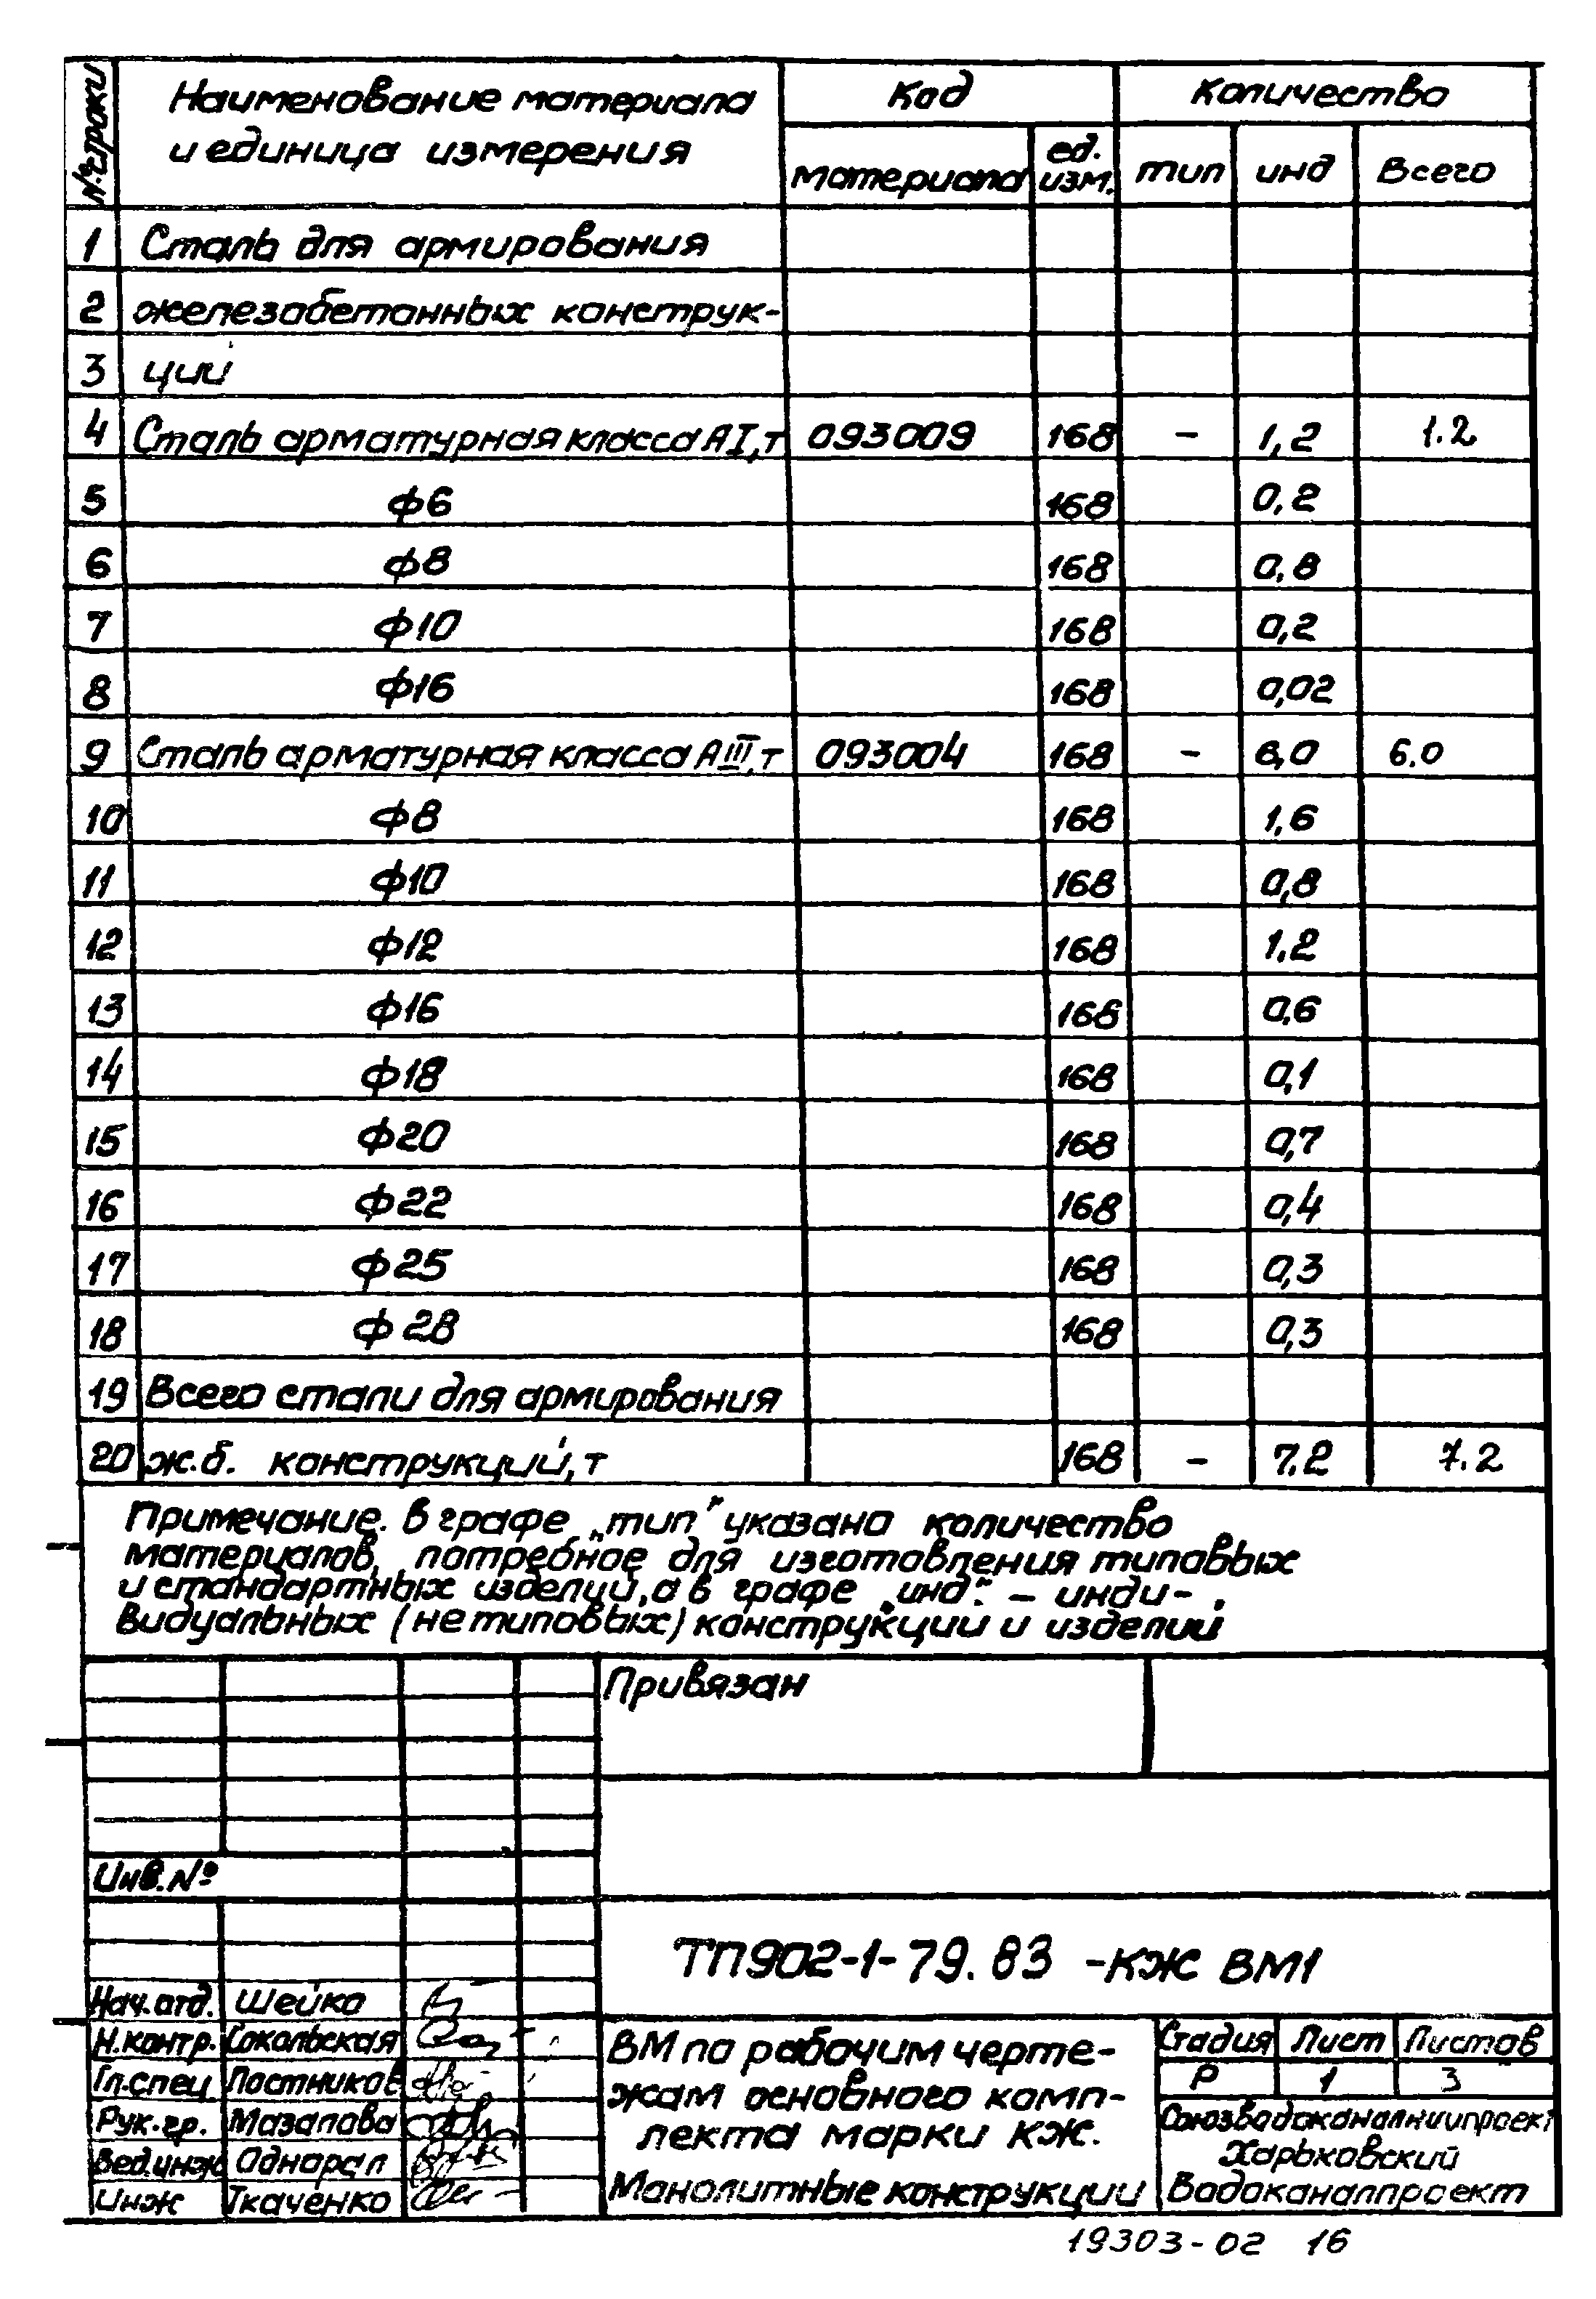 № строки
Наименование материала
и единица измерения
Код
Количество
материала
ед.
изм.
тип
инд
Всего
1 Сталь для армирования
2 железобетонных конструк-
3 ций
4 Сталь арматурная класса АI,т 093009 168 - 1,2 1.2
5 ф6 168 0,2
6 ф8 168 0,8
7 ф10 168 0,2
8 ф16 168 0,02
9 Сталь арматурная класса АIII,т 093004 168 - 6,0 6.0
10 ф8 168 1,6
11 ф10 168 0,8
12 ф12 168 1.2
13 ф16 168 0,6
14 ф18 168 0,1
15 ф20 168 0,7
16 ф22 168 0,4
17 ф25 168 0,3
18 ф28 168 0,3
19 Всего стали для армирования
20 ж.б. конструкций,т 168 - 7.2 7.2
Примечание. В графе „тип" указано количество
материалов, потребное для изготовления типовых
и стандартных изделий, а в графе „инд." – инди-
видуальных (нетиповых) конструкций и изделий
Привязан
Инв.№
ТП902-1-79.83 -КЖ ВМ1
Нач.отд. Шейко
Н.контр. Сокольская
Гл.спец Постников
Рук.гр. Мазалова
Вед.инж Однорал
Инж Ткаченко
ВМ по рабочим черте-
жам основного комп-
лекта марки КЖ.
Монолитные конструкции
Стадия Лист Листов
Р 1 3
Союзводоканалниипроект
Харьковский
Водоканалпроект
19303-02 16